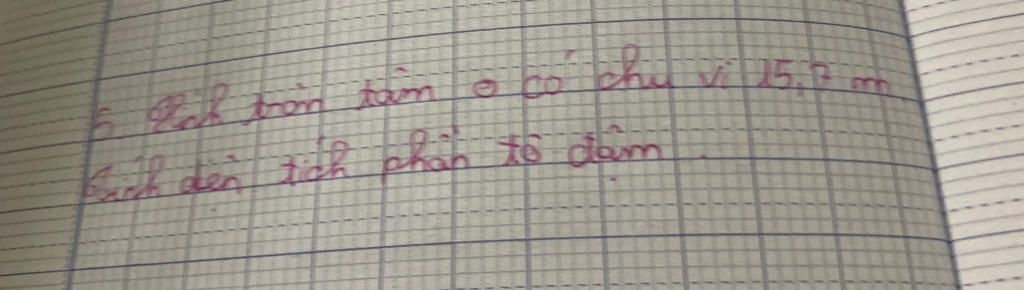 5 Hình tròn tâm O có chu vi 15,7 cm
diện tích phần tô đậm.